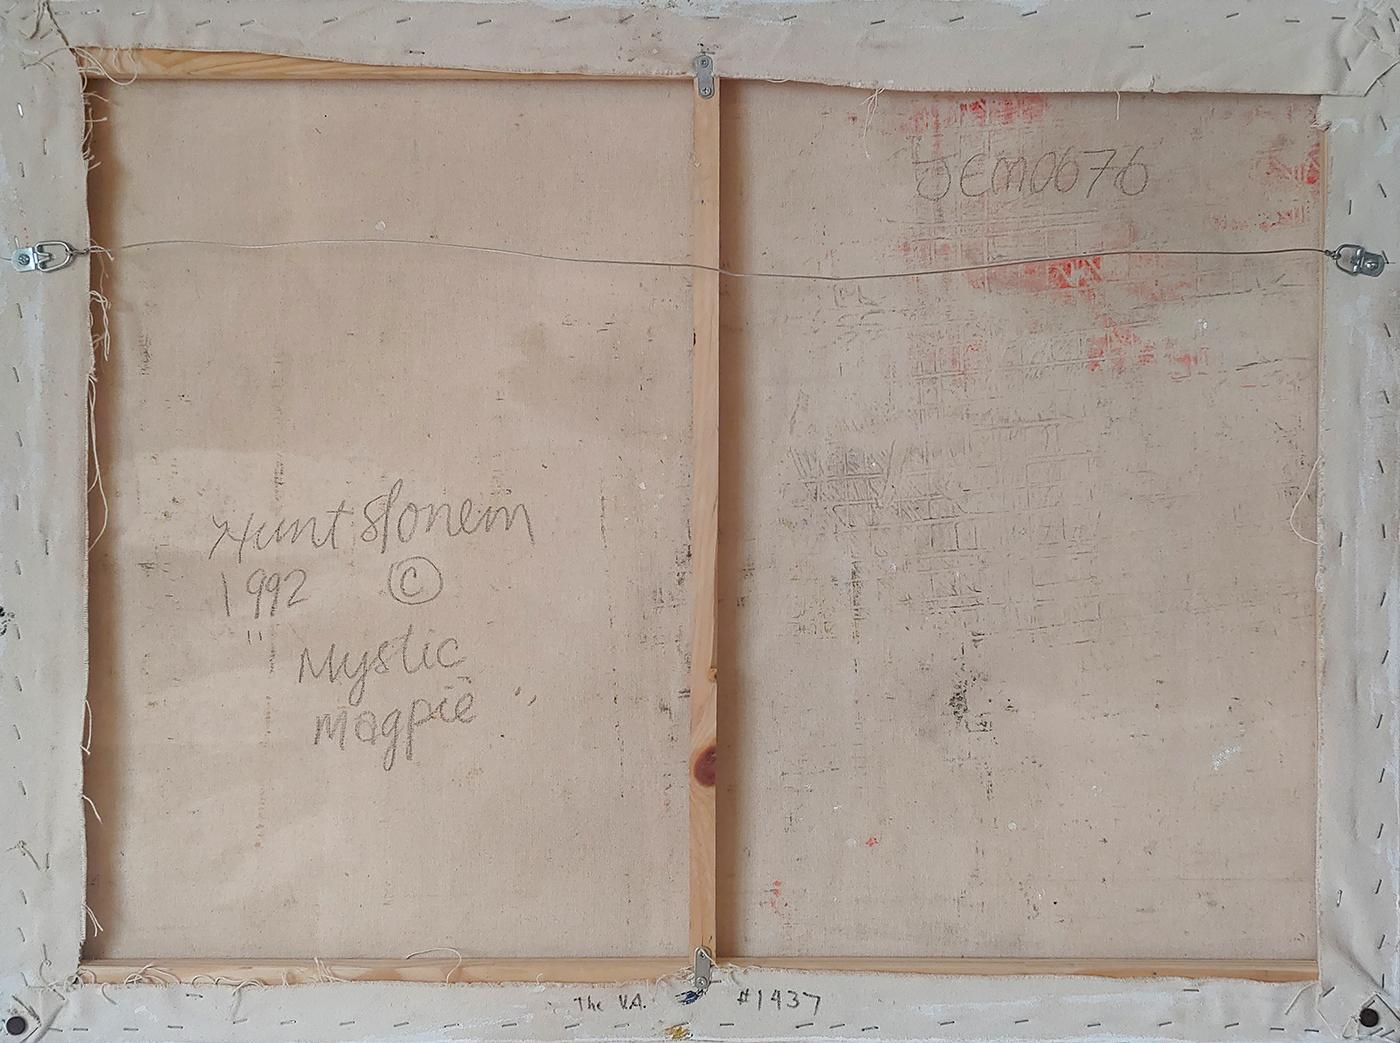 JEM0676
Hunt Slonem
1992 ©
"Mystic
Magpie"
The V.A. #1437